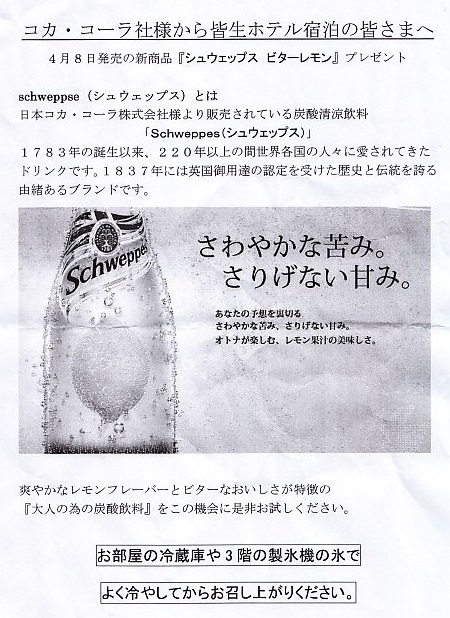 コカ・コーラ社様から皆生ホテル宿泊の皆さまへ
４月８日発売の新商品『シュウェップス ビターレモン』プレゼント
schweppse（シュウェップス）とは
日本コカ・コーラ株式会社様より販売されている炭酸清涼飲料
「Schweppes(シュウェップス)」
１７８３年の誕生以来、２２０年以上の間世界各国の人々に愛されてきた
ドリンクです。１８３７年には英国御用達の認定を受けた歴史と伝統を誇る
由緒あるブランドです。
Schweppes
さわやかな苦み。
さりげない甘み。
あなたの予想を裏切る
さわやかな苦み、さりげない甘み。
オトナが楽しむ、レモン果汁の美味しさ。
爽やかなレモンフレーバーとビターなおいしさが特徴の
『大人の為の炭酸飲料』をこの機会に是非お試しください。
お部屋の冷蔵庫や３階の製氷機の氷で
よく冷やしてからお召し上がりください。